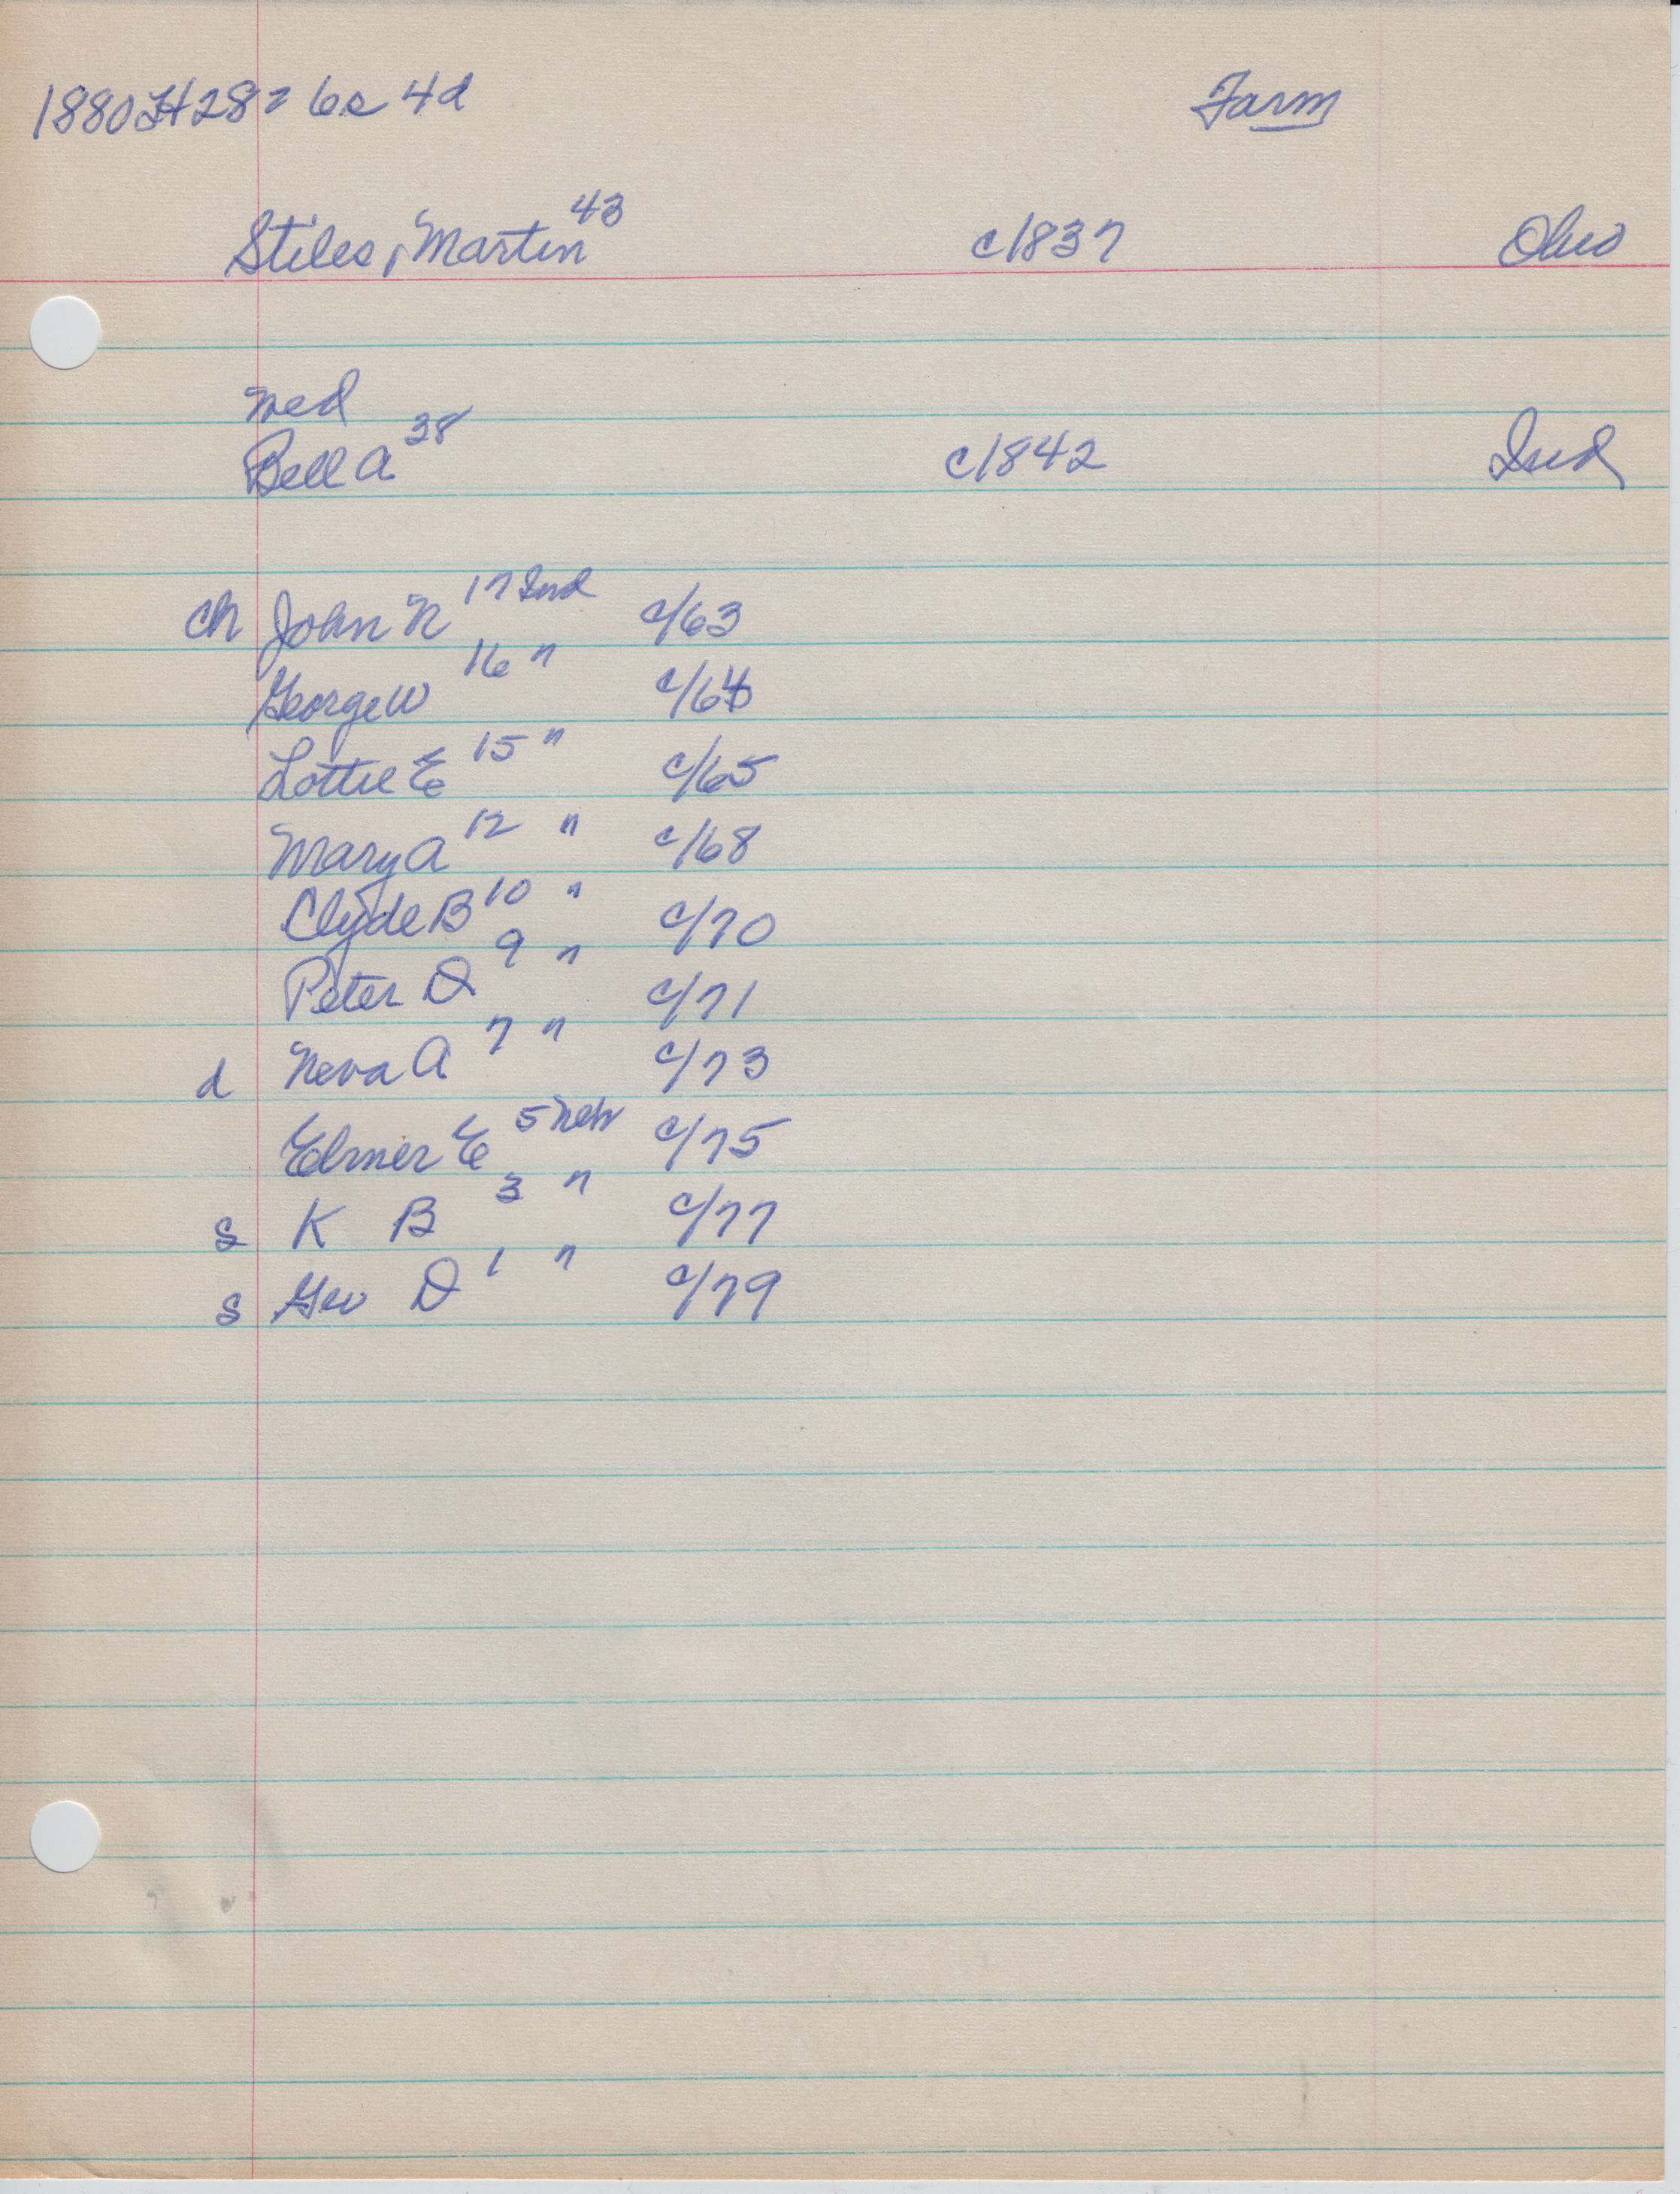 1880 FH 287 6s 4d Farm
Stiles, Martin 43 c1837 Ohio
med
Bell A 38 c1842 Ind
ch John N 17 Ind c/63
George W 16 " c/64
Lottie E 15 " c/65
Mary A 12 " c/68
Clyde B 10 " c/70
Peter D 9 " c/71
d Neva A 7 " c/73
Elmer E 5 Neb c/75
s K B 3 " c/77
s Geo D 1 " c/79